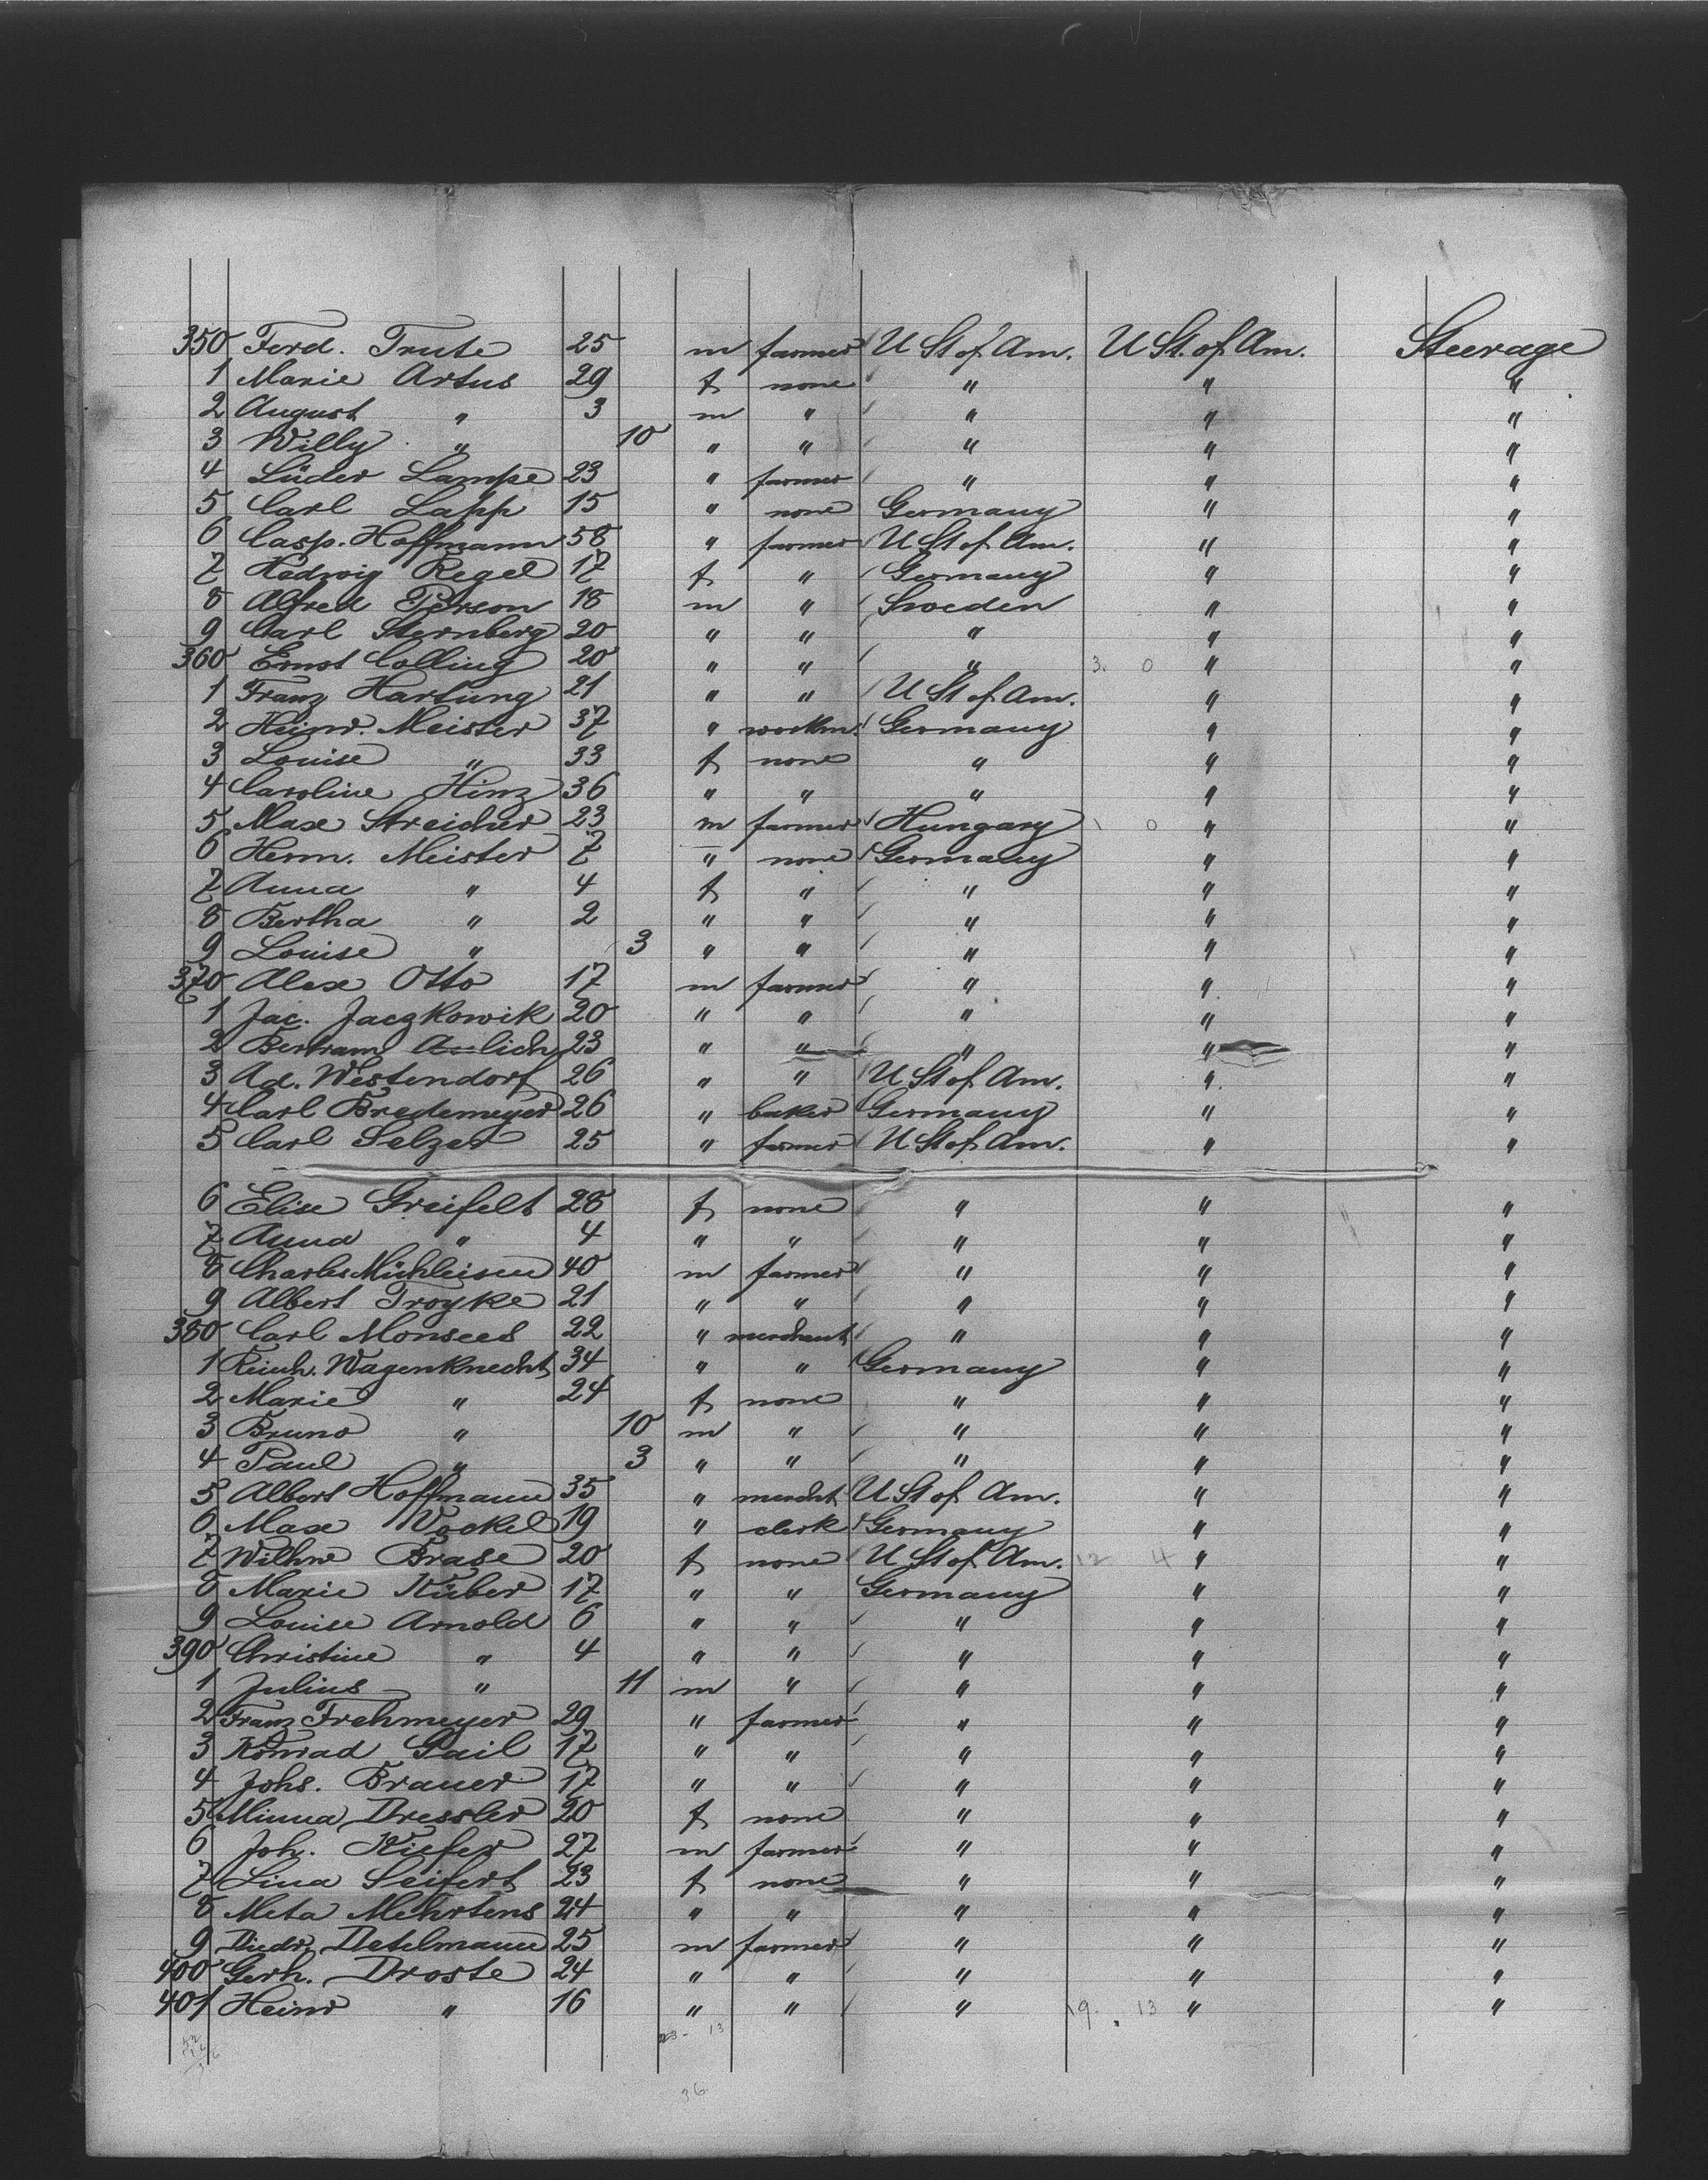 350 Ferd. Trute 25 m farmer U St of Am. U St. of Am. Steerage
1 Marie Artus 29 f none " " "
2 August " 3 m " " " "
3 Willy " 10 " " " " "
4 Lüder Lampe 23 " farmer " " "
5 Carl Lapp 15 " none Germany " "
6 Casp. Hoffmann 58 " farmer U St of Am. " "
7 Hedwig Regel 17 f " Germany " "
8 Alfred Person 18 m " Sweden " "
9 Carl Sternberg 20 " " " " "
360 Ernst Colling 20 " " " 3. 0 " "
1 Franz Hartung 21 " " U St of Am. " "
2 Heinr. Meister 37 " workm. Germany " "
3 Louise " 33 f none " " "
4 Caroline Hinz 36 " " " " "
5 Max Streicher 23 m farmer Hungary 1 0 " "
6 Herm. Meister 7 " none Germany " "
7 Anna " 4 f " " " "
8 Bertha " 2 " " " " "
9 Louise " 3 " " " " "
370 Alex Otto 17 m farmer " " "
1 Jac. Jaczkowik 20 " " " " "
2 Bertram 23 " " " " "
3 Ad. Westendorf 26 " " U St of Am. " "
4 Carl Bredemeyer 26 " baker Germany " "
5 Carl Selzer 25 " farmer U St of Am. " "
6 Elise Greifelt 28 f none " " "
7 Anna " 4 " " " " "
8 Charles Mühleisen 40 m farmer " " "
9 Albert Troyke 21 " " " " "
380 Carl Monsees 22 " merchant " " "
1 Reinh. Wagenknecht 34 " " Germany " "
2 Marie " 24 f none " " "
3 Bruno " 10 m " " " "
4 Paul " 3 " " " " "
5 Albert Hoffmann 35 " mercht U St of Am. " "
6 Max Vockel 19 " clerk Germany " "
7 Wilhne Brase 20 f none U St of Am. 12 4 " "
8 Marie Küber 17 " " Germany " "
9 Louise Arnold 6 " " " " "
390 Christine " 4 " " " " "
1 Julius " 11 m " " " "
2 Franz Frehmeyer 29 " farmer " " "
3 Konrad Gail 17 " " " " "
4 Johs. Brauer 17 " " " " "
5 Minna Dressler 20 f none " " "
6 Joh. Kiefer 27 m farmer " " "
7 Lina Seifert 23 f none " " "
8 Meta Mehrtens 24 " " " " "
9 Diedr. Detelmann 25 m farmer " " "
400 Gerh. Droste 24 " " " " "
401 Heinr " 16 " " " 19. 13 " "
23- 13
36